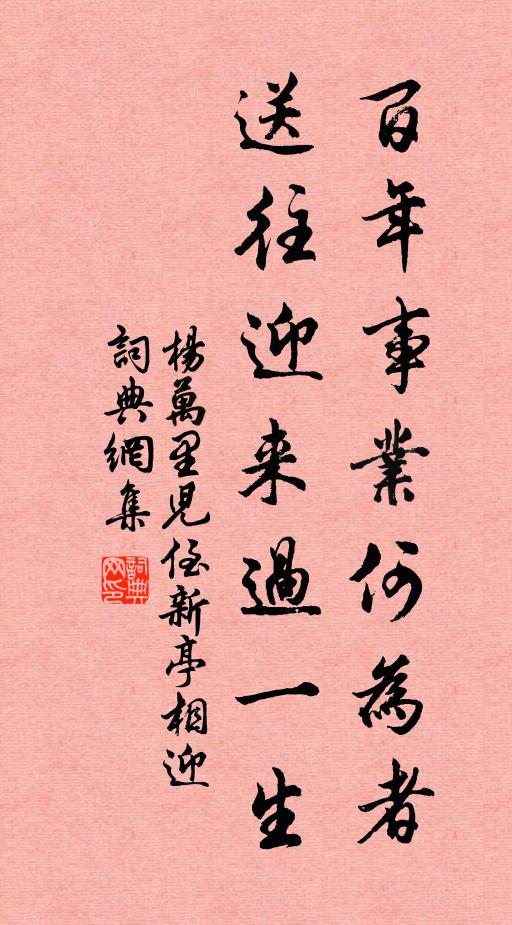 百年事業何為者
送往迎来過一生
楊萬里児侄新亭相迎
詞典網集
詞典网印